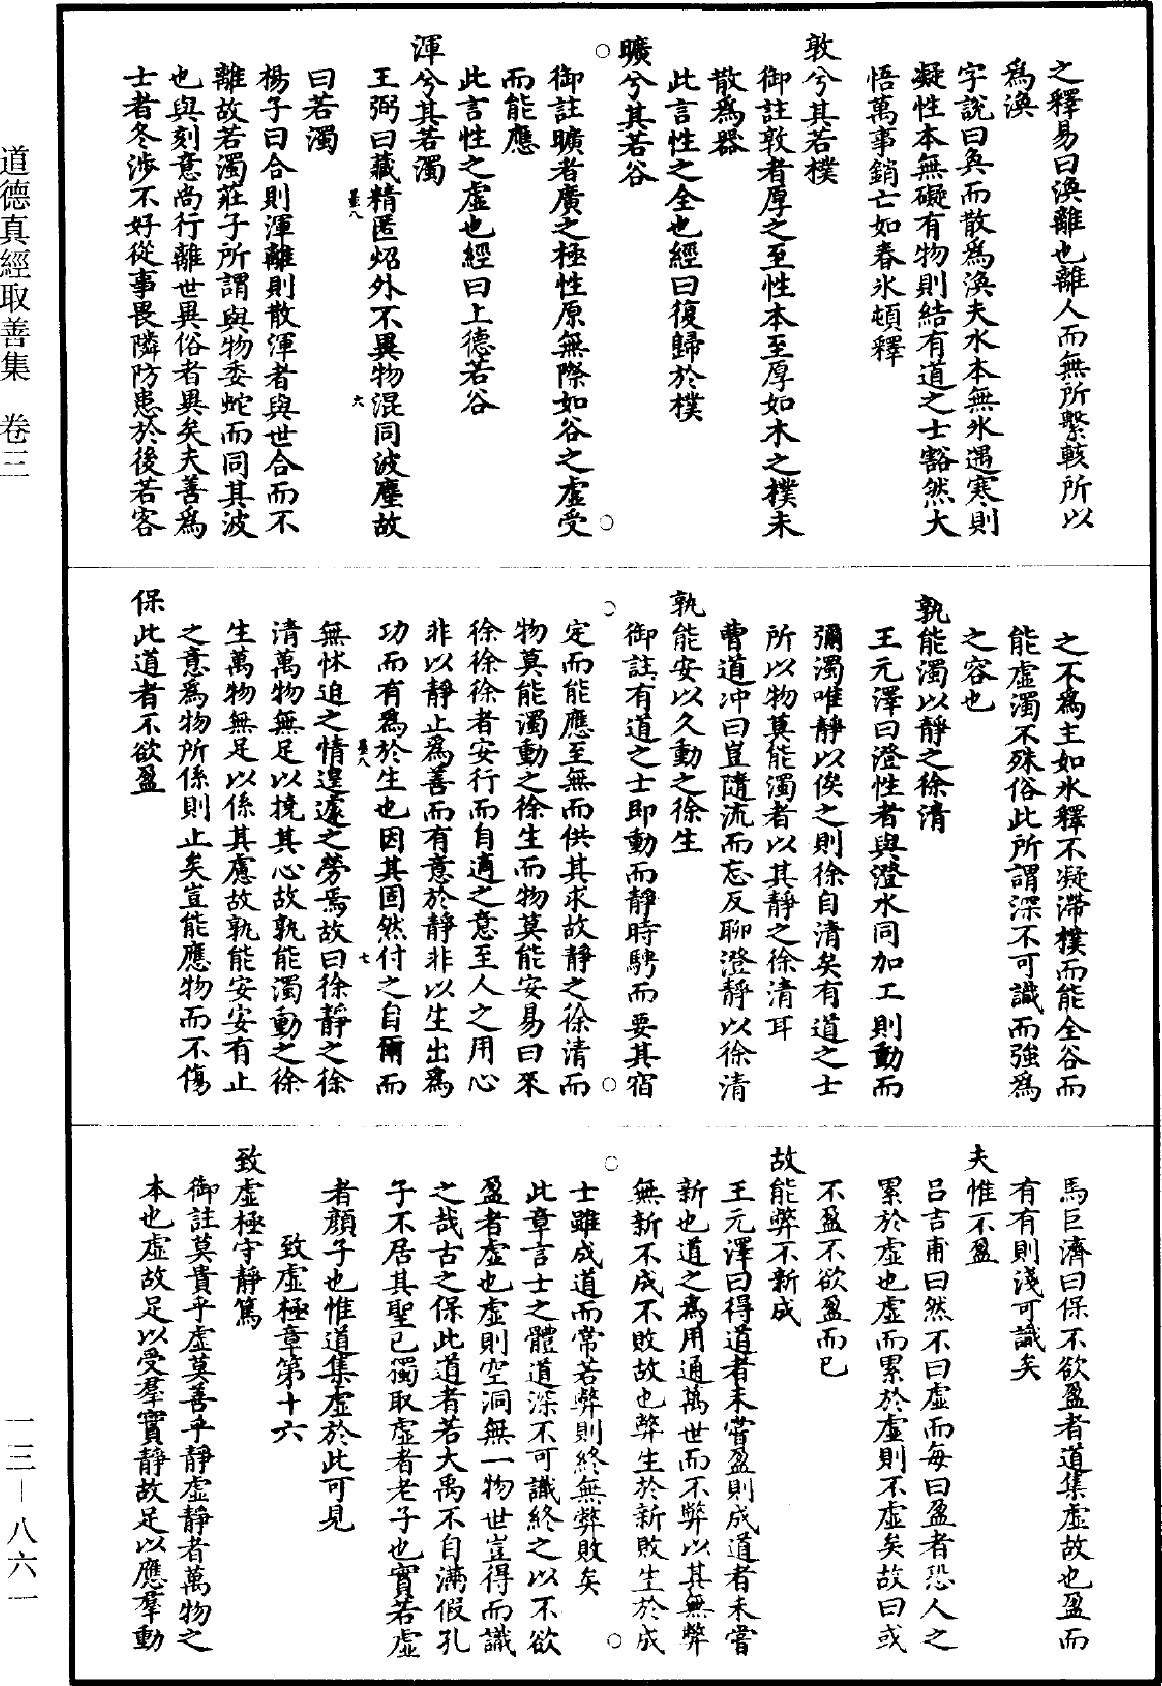 之釋易曰渙離也離人而無所繫輆所以
爲渙
字說曰奐而散爲渙夫水本無氷遇寒則
凝性本無礙有物則結有道之士豁然大
悟萬事銷亡如春氷頓釋
敦兮其若樸
御註敦者厚之至性本至厚如木之樸未
散爲器
此言性之全也經曰復歸於樸
曠兮其若谷
御註曠者廣之極性原無際如谷之虛受
而能應
此言性之虛也經曰上德若谷
渾兮其若濁
王弼曰藏精匿炤外不異物混同波塵故
曰若濁
楊子曰合則渾離則散渾者與世合而不
離故若濁莊子所謂與物委蛇而同其波
也與刻意尚行離世異俗者異矣夫善爲
士者冬涉不好從事畏隣防患於後若客
之不爲主如氷釋不凝滯樸而能全谷而
能虛濁不殊俗此所謂深不可識而強爲
之容也
孰能濁以靜之徐清
王元澤曰澄性者與澄水同加工則動而
彌濁唯靜以俟之則徐自清矣有道之士
所以物莫能濁者以其靜之徐清耳
曹道沖曰豈隨流而忘反聊澄靜以徐清
孰能安以久動之徐生
御註有道之士即動而靜時騁而要其宿
定而能應至無而供其求故靜之徐清而
物莫能濁動之徐生而物莫能安易曰來
徐徐徐者安行而自適之意至人之用心
非以靜止爲善而有意於靜非以生出爲
功而有爲於生也因其固然付之自爾而
無怵迫之情遑遽之勞焉故曰徐靜之徐
清萬物無足以撓其心故孰能濁動之徐
生萬物無足以係其慮故孰能安安有止
之意爲物所係則止矣豈能應物而不傷
保此道者不欲盈
馬巨濟曰保不欲盈者道集虛故也盈而
有有則淺可識矣
夫惟不盈
呂吉甫曰然不曰虛而每曰盈者恐人之
累於虛也虛而累於虛則不虛矣故曰或
不盈不欲盈而已
故能弊不新成
王元澤曰得道者未嘗盈則成道者未嘗
新也道之爲用通萬世而不弊以其無弊
無新不成不敗故也弊生於新敗生於成
士雖成道而常若弊則終無弊敗矣
此章言士之體道深不可識終之以不欲
盈者虛也虛則空洞無一物世豈得而識
之哉古之保此道者若大禹不自滿假孔
子不居其聖已獨取虛者老子也實若虛
者顏子也惟道集虛於此可見
致虛極章第十六
致虛極守靜篤
御註莫貴乎虛莫善乎靜虛靜者萬物之
本也虛故足以受羣實靜故足以應羣動
道德真經取善集　卷三
一三－八六一